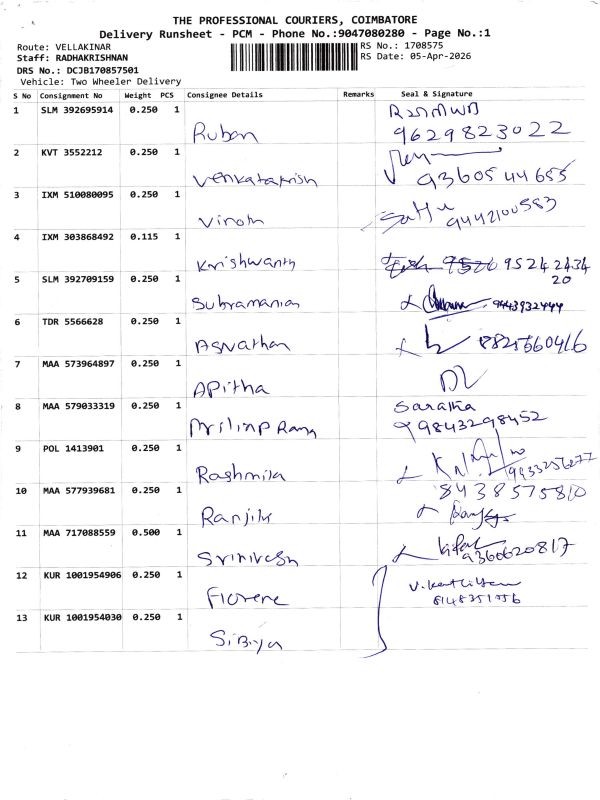 THE PROFESSIONAL COURIERS, COIMBATORE
Delivery Runsheet - PCM - Phone No.:9047080280 - Page No.:1
Route: VELLAKINAR RS No.: 1708575
Staff: RADHAKRISHNAN RS Date: 05-Apr-2026
DRS No.: DCJB170857501
Vehicle: Two Wheeler Delivery
S No Consignment No Weight PCS Consignee Details Remarks Seal & Signature
1 SLM 392695914 0.250 1
Ruban 9629823022
2 KVT 3552212 0.250 1
Venkatakrish 9360544655
3 IXM 510080095 0.250 1
Vinoth 9442100583
4 IXM 303868492 0.115 1
Krishwanth 95242434
20
5 SLM 392709159 0.250 1
Subramanian 9443932444
6 TDR 5566628 0.250 1
Asvathan 8825560416
7 MAA 573964897 0.250 1
Apitha
8 MAA 579033319 0.250 1 Saratha
9843298452
9 POL 1413901 0.250 1
Rashmika 9933256277
10 MAA 577939681 0.250 1 8438575810
Ranjith
11 MAA 717088559 0.500 1
Srinivesh 9360620817
12 KUR 1001954906 0.250 1
Florene 8148351056
13 KUR 1001954030 0.250 1
Sibiya